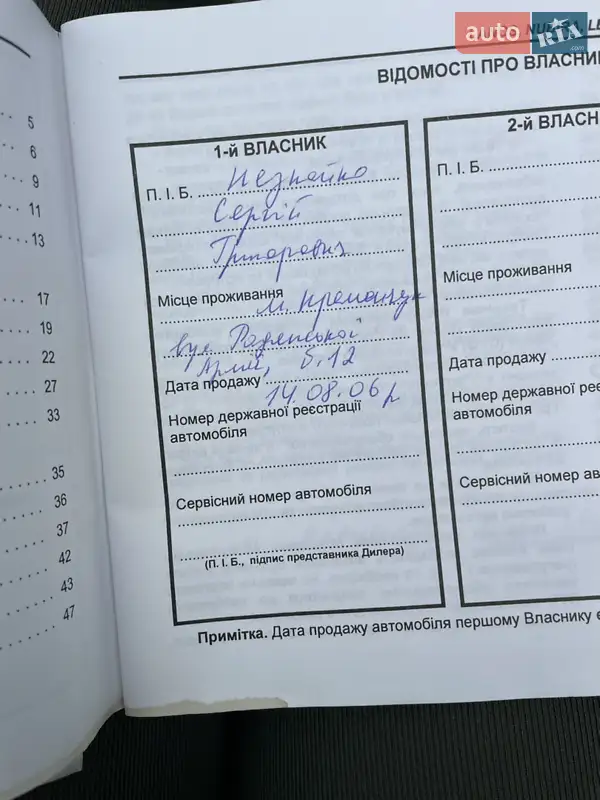 5
6
9
11
13
17
19
22
27
33
35
36
37
42
43
47
auto RIA .com
ВІДОМОСТІ ПРО ВЛАСНИ
1-й ВЛАСНИК
П. І. Б. Незнайко
Сергій
Григорович
Місце проживання
м. Кременчук
вул Радянської
Армії, б. 12
Дата продажу
14.08.06р
Номер державної реєстрації
автомобіля
Сервісний номер автомобіля
(П. І. Б., підпис представника Дилера)
2-й ВЛАСН
П. І. Б.
Місце проживання
Дата продажу
Номер державної реє
автомобіля
Сервісний номер ав
Примітка. Дата продажу автомобіля першому Власнику є